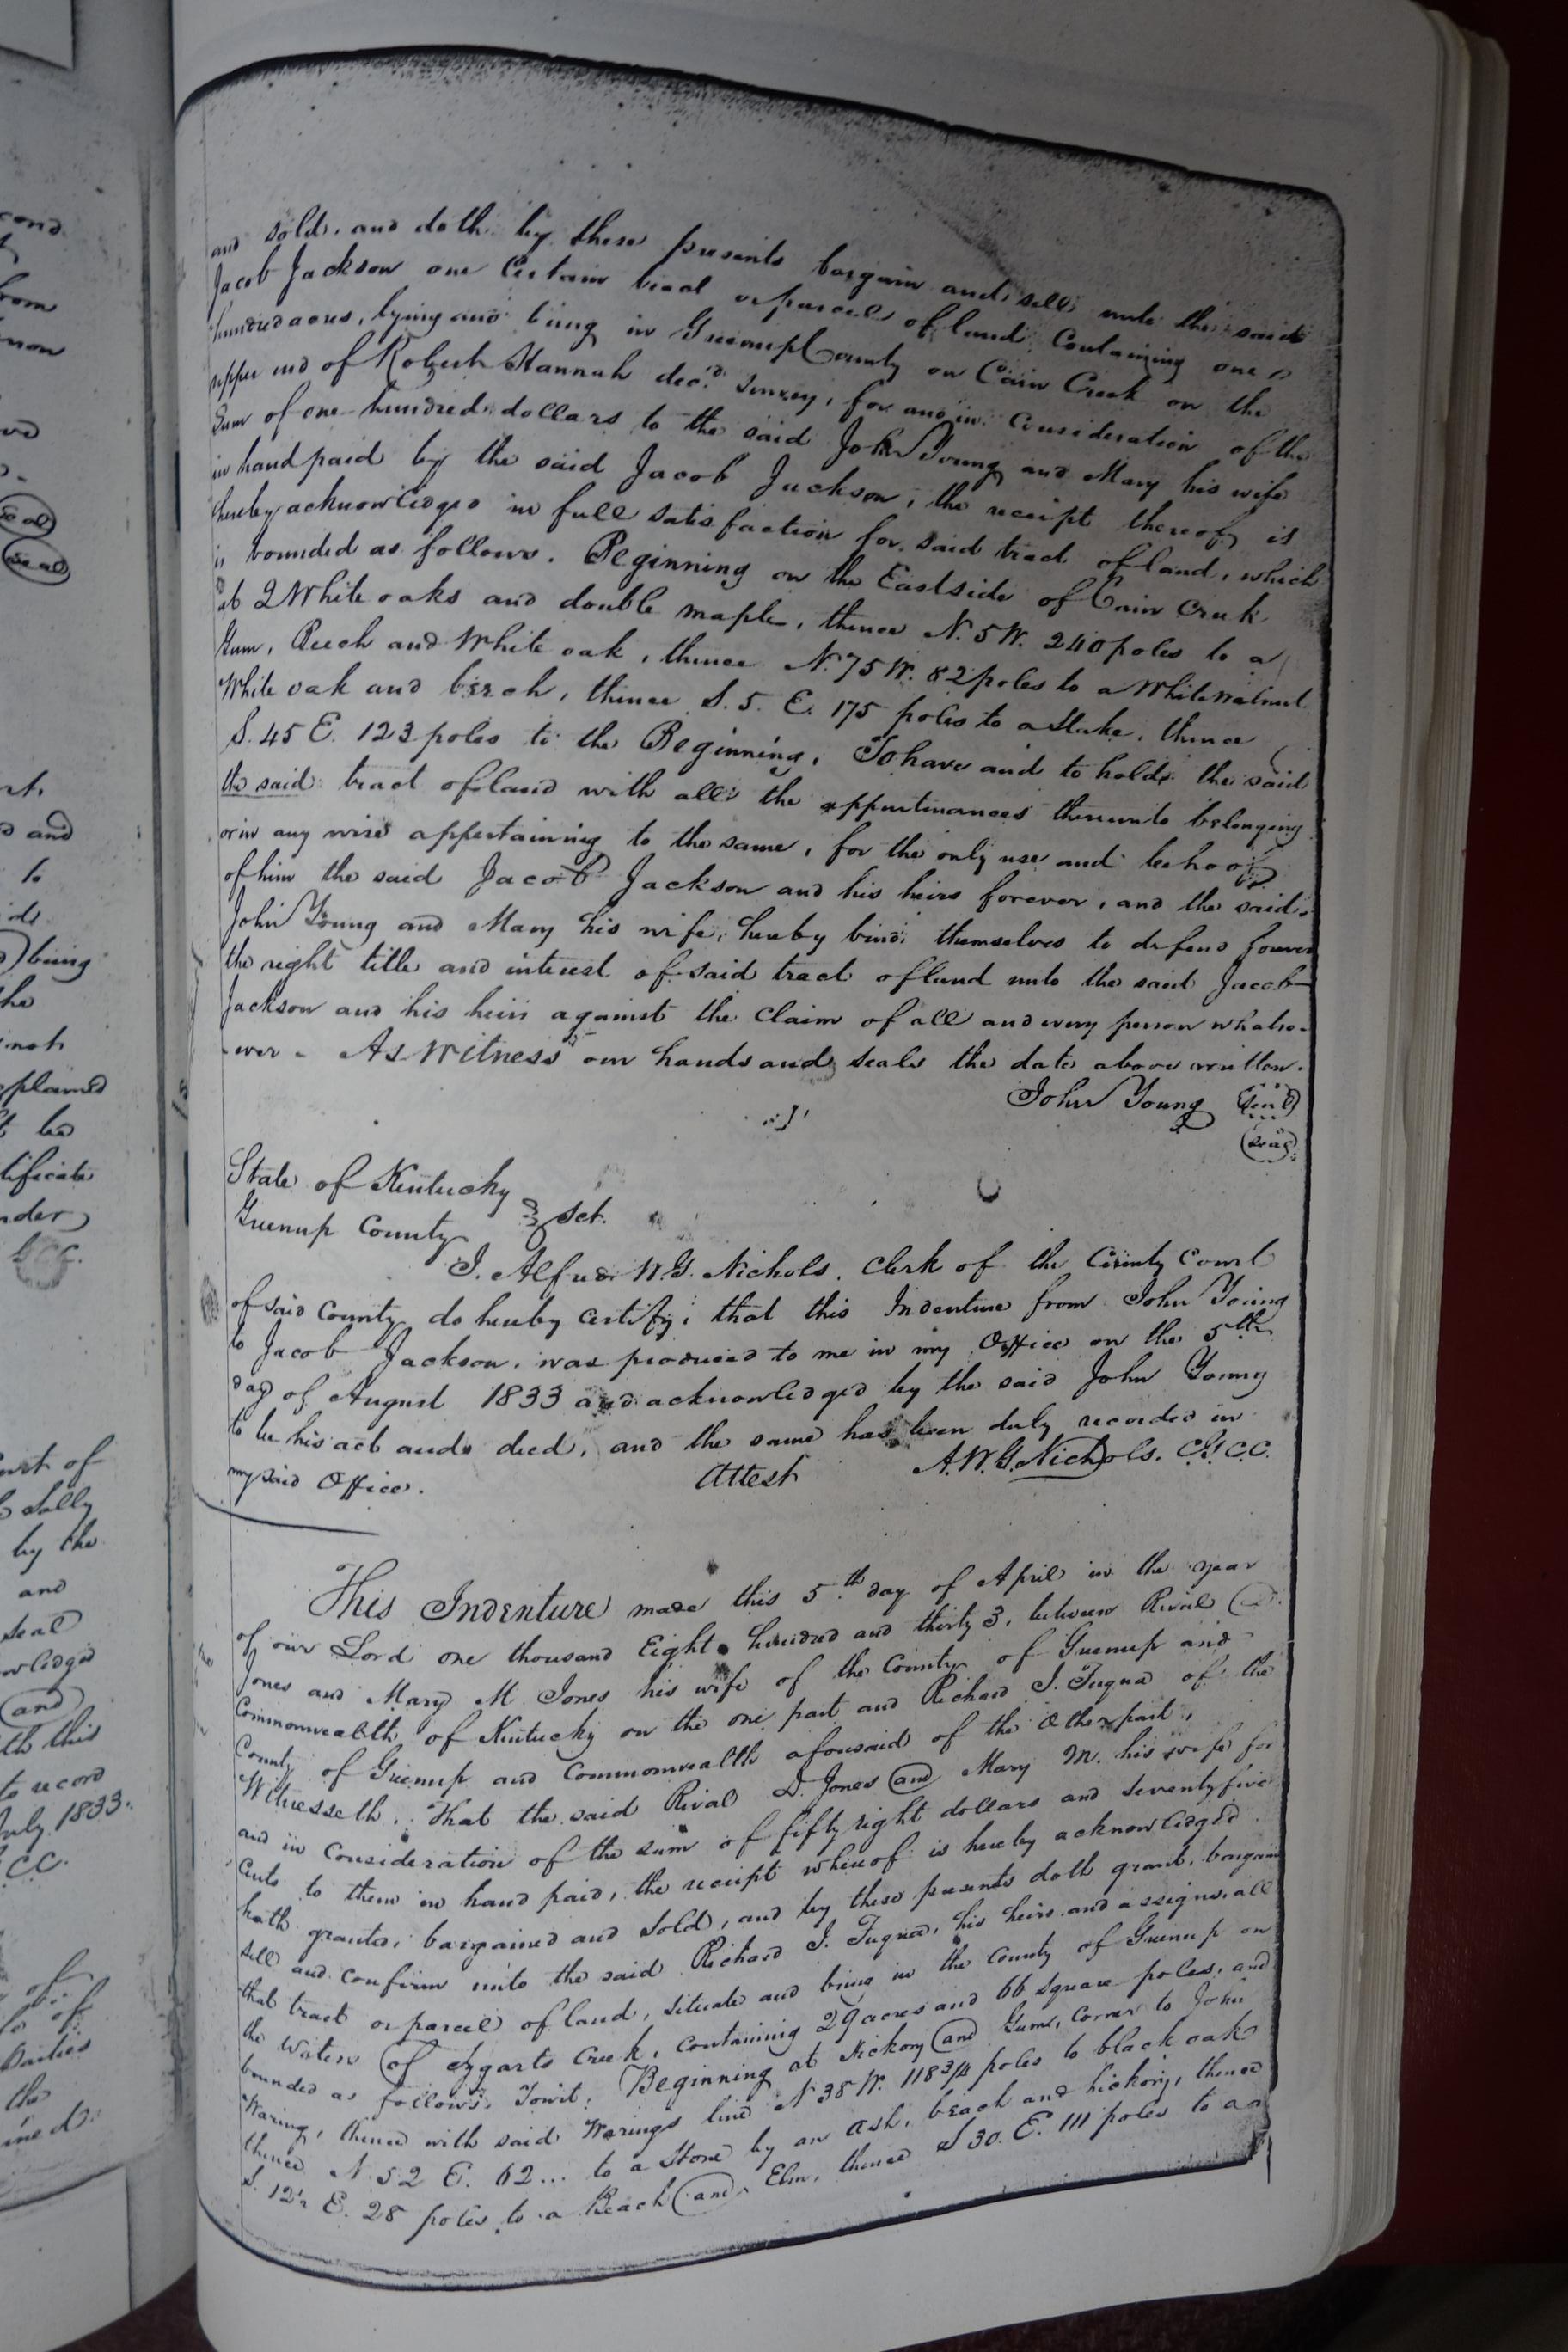 and sold, and doth by these presents bargain and sell unto the said
Jacob Jackson one Certain tract or parcel of land Containing one
hundred acres, lying and being in Greenup County on Cain Creek on the
upper end of Robert Hannah dec.d survey, for and in Consideration of the
Sum of one hundred dollars to the said John Young and Mary his wife
in hand paid by the said Jacob Jackson, the receipt thereof is
hereby acknowledged in full satisfaction for said tract of land, which
is bounded as follows. Beginning on the East side of Cain Creek
at 2 White oaks and double maple, thence N. 5 W. 240 poles to a
Gum, Beech and White oak, thence N. 75 W. 82 poles to a White Walnut
White oak and beech, thence S. 5. E. 175 poles to a Stake, thence
S. 45 E. 123 poles to the Beginning, To have and to hold the said
the said tract of land with all the appurtinances thereunto belonging
or in any wise appertaining to the same, for the only use and behoof
of him the said Jacob Jackson and his heirs forever, and the said
John Young and Mary his wife, hereby bind themselves to defend forever
the right title and interest of said tract of land unto the said Jacob
Jackson and his heirs against the Claim of all and every person whatso-
-ever - As Witness our hands and seals the date above written.
John Young (seal)
(seal)
State of Kentucky
Greenup County } Sct.
I. Alfred W. G. Nichols, Clerk of the County Court
of said County do hereby certify, that this Indenture from John Young
to Jacob Jackson, was produced to me in my Office on the 5th
day of August 1833 and acknowledged by the said John Young
to be his act and deed, and the same has been duly recorded in
my said Office. Attest A. W. G. Nichols. C.G.C.C.
This Indenture made this 5.th day of April in the year
of our Lord one thousand Eight hundred and thirty 3, between Rival D.
Jones and Mary M Jones his wife of the County of Greenup and
Commonwealth of Kentucky on the one part and Richard J. Fuqua of the
County of Greenup and Commonwealth aforesaid of the Other part,
Witnesseth. That the said Rival D. Jones and Mary M. his wife for
and in Consideration of the sum of fifty eight dollars and seventy five
Cents to them in hand paid, the receipt whereof is hereby acknowledged
hath granted, bargained and sold, and by these presents doth grant, bargain
sell and confirm unto the said Richard J. Fuqua, his heirs and assigns, all
that tract or parcel of land, situate and being in the County of Greenup on
the Waters of Tygarts Creek, containing 29 acres and 66 square poles, and
bounded as follows, Towit; Beginning at hickory and Gum, Corner to John
Waring, thence with said Warings line N 38 W. 118 3/4 poles to black oak
thence N. 52 E. 62... to a Stone by an ash, beach and hickory, thence
S. 12 1/2 E. 28 poles to a Beach and Elm, thence S 30. E. 111 poles to a